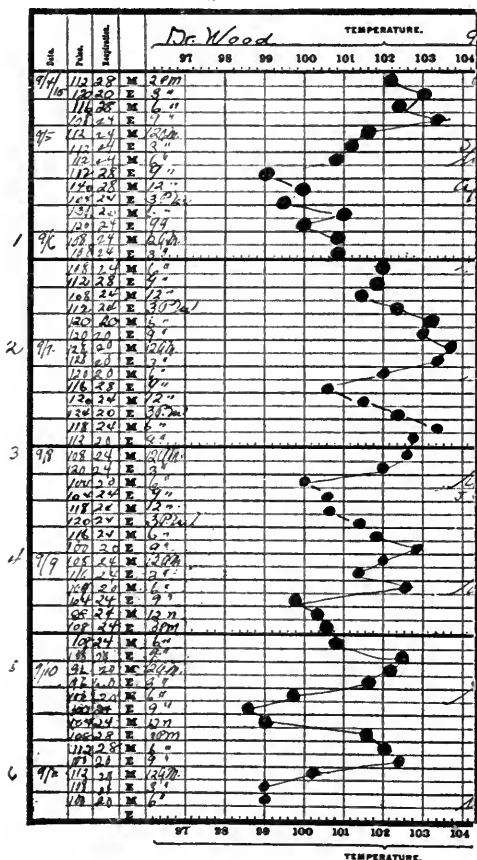 Dr. Wood TEMPERATURE. 9
Date. Pulse. Respiration. 97 98 99 100 101 102 103 104
9/4/15 112 28 M 2pm
120 20 E 3 "
116 28 M 6 "
108 24 E 9 "
9/5 112 24 M 12am.
112 24 E 3 "
112 24 M 6 "
112 28 E 9 "
140 28 M 12 "
108 24 E 3 P.M.
M
120 24 E 99
1 9/6 108 24 M 12am.
108 24 E 3 "
108 24 M 6 "
112 28 E 9 "
108 24 M 12 "
112 24 E 3 PM
120 20 M 6 "
120 20 E 9 "
2 9/7 128 20 M 12am.
128 20 E
120 20 M
116 28 E 9 "
120 24 M 12 "
124 20 E 3 PM
118 24 M 6 "
112 20 E 9 "
3 9/8 108 24 M 12am.
120 24 E 3 "
100 20 M 6 "
104 24 E 9 "
118 24 M 12 "
120 24 E 3 PM
116 24 M 6 "
100 20 E 9 "
4 9/9 108 24 M 12am
24 E
20 M 6 "
104 24 E 9 "
24 M 12 n
108 24 E 3pm
108 24 M 6 "
E 9 "
5 9/10 92 20 M 12am.
20 E 3 "
20 M 6 "
E 9 "
104 24 M 12n
108 28 E 3pm
112 28 M 6 "
20 E 9 "
6 112 28 M 12am.
E 3 "
100 20 M 6 "
E
97 98 99 100 101 102 103 104
TEMPERATURE.